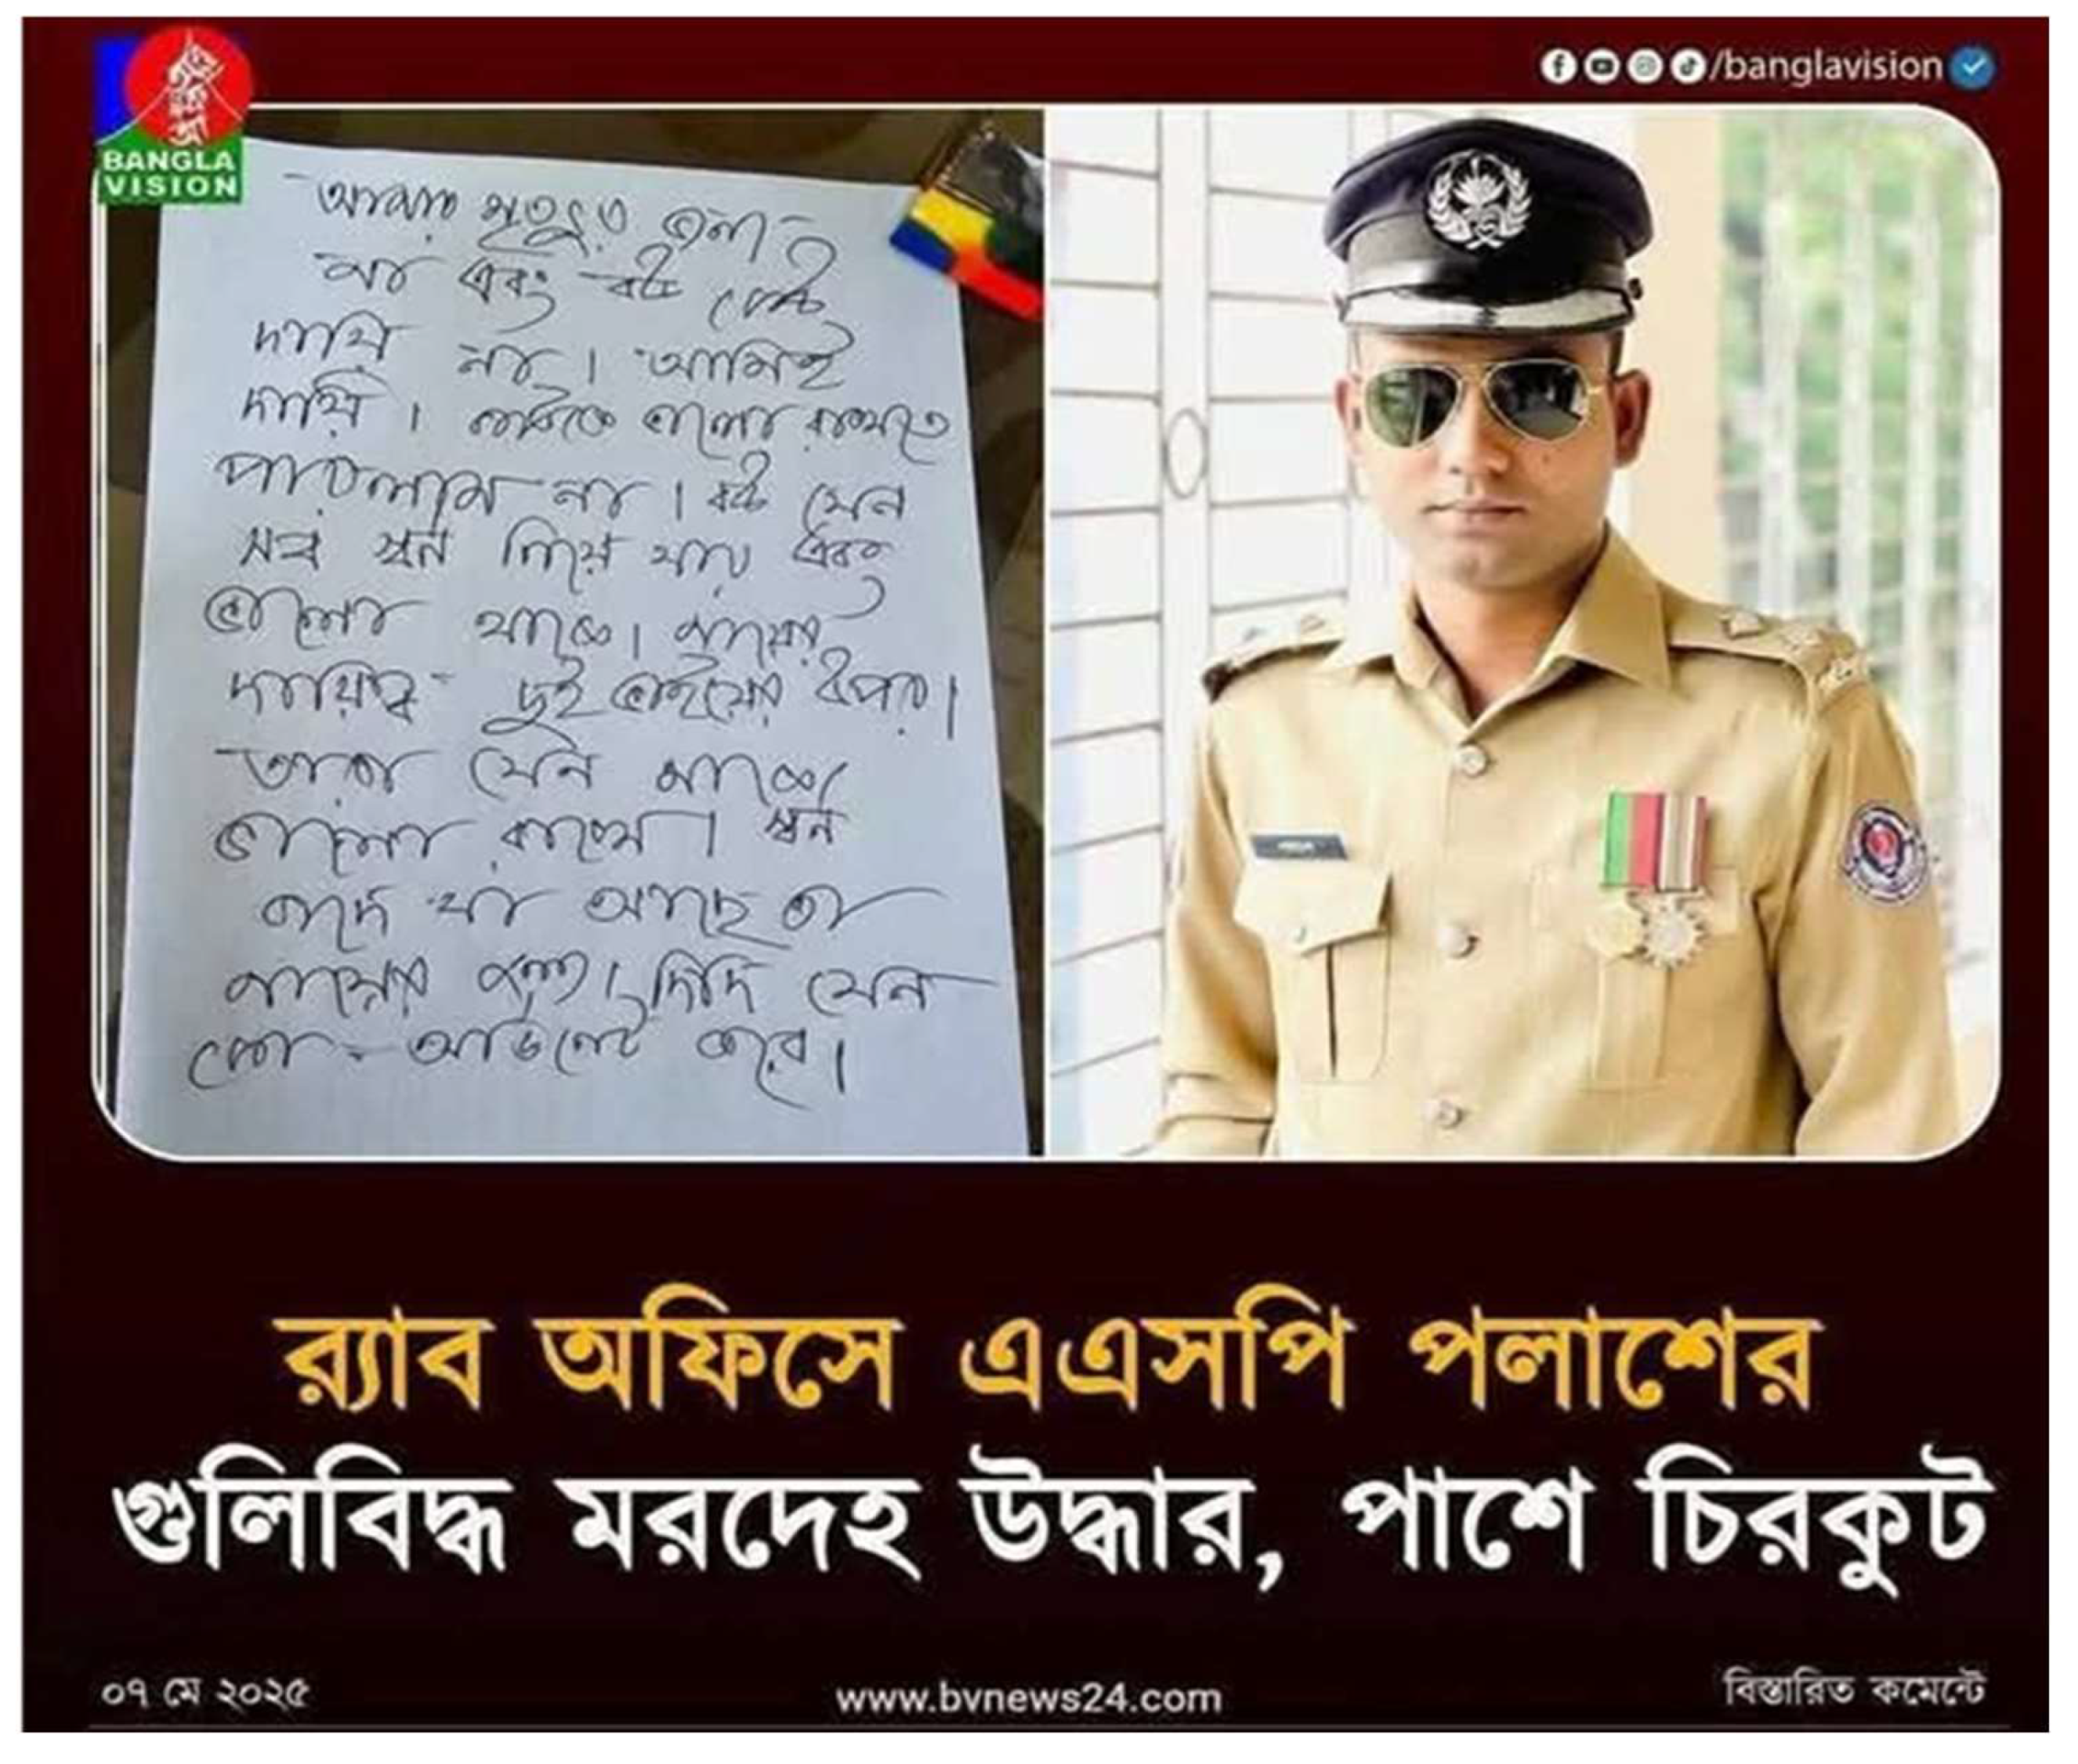 BANGLA
VISION
/banglavision
আমার মৃত্যুর জন্য
মা এবং বউ কেউ
দায়ি না। আমিই
দায়ি। কাউকে ভালো রাখতে
পারলাম না। বউ যেন
সব স্বর্ন নিয়ে যায় এবং
ভালো থাকে। মায়ের
দায়িত্ব দুই ভাইয়ের উপর।
তারা যেন মাকে
ভালো রাখে। স্বর্ন
বাদে যা আছে তা
মায়ের জন্য। দিদি যেন
কো-অর্ডিনেট করে।
র‍্যাব অফিসে এএসপি পলাশের
গুলিবিদ্ধ মরদেহ উদ্ধার, পাশে চিরকুট
০৭ মে ২০২৫
www.bvnews24.com
বিস্তারিত কমেন্টে